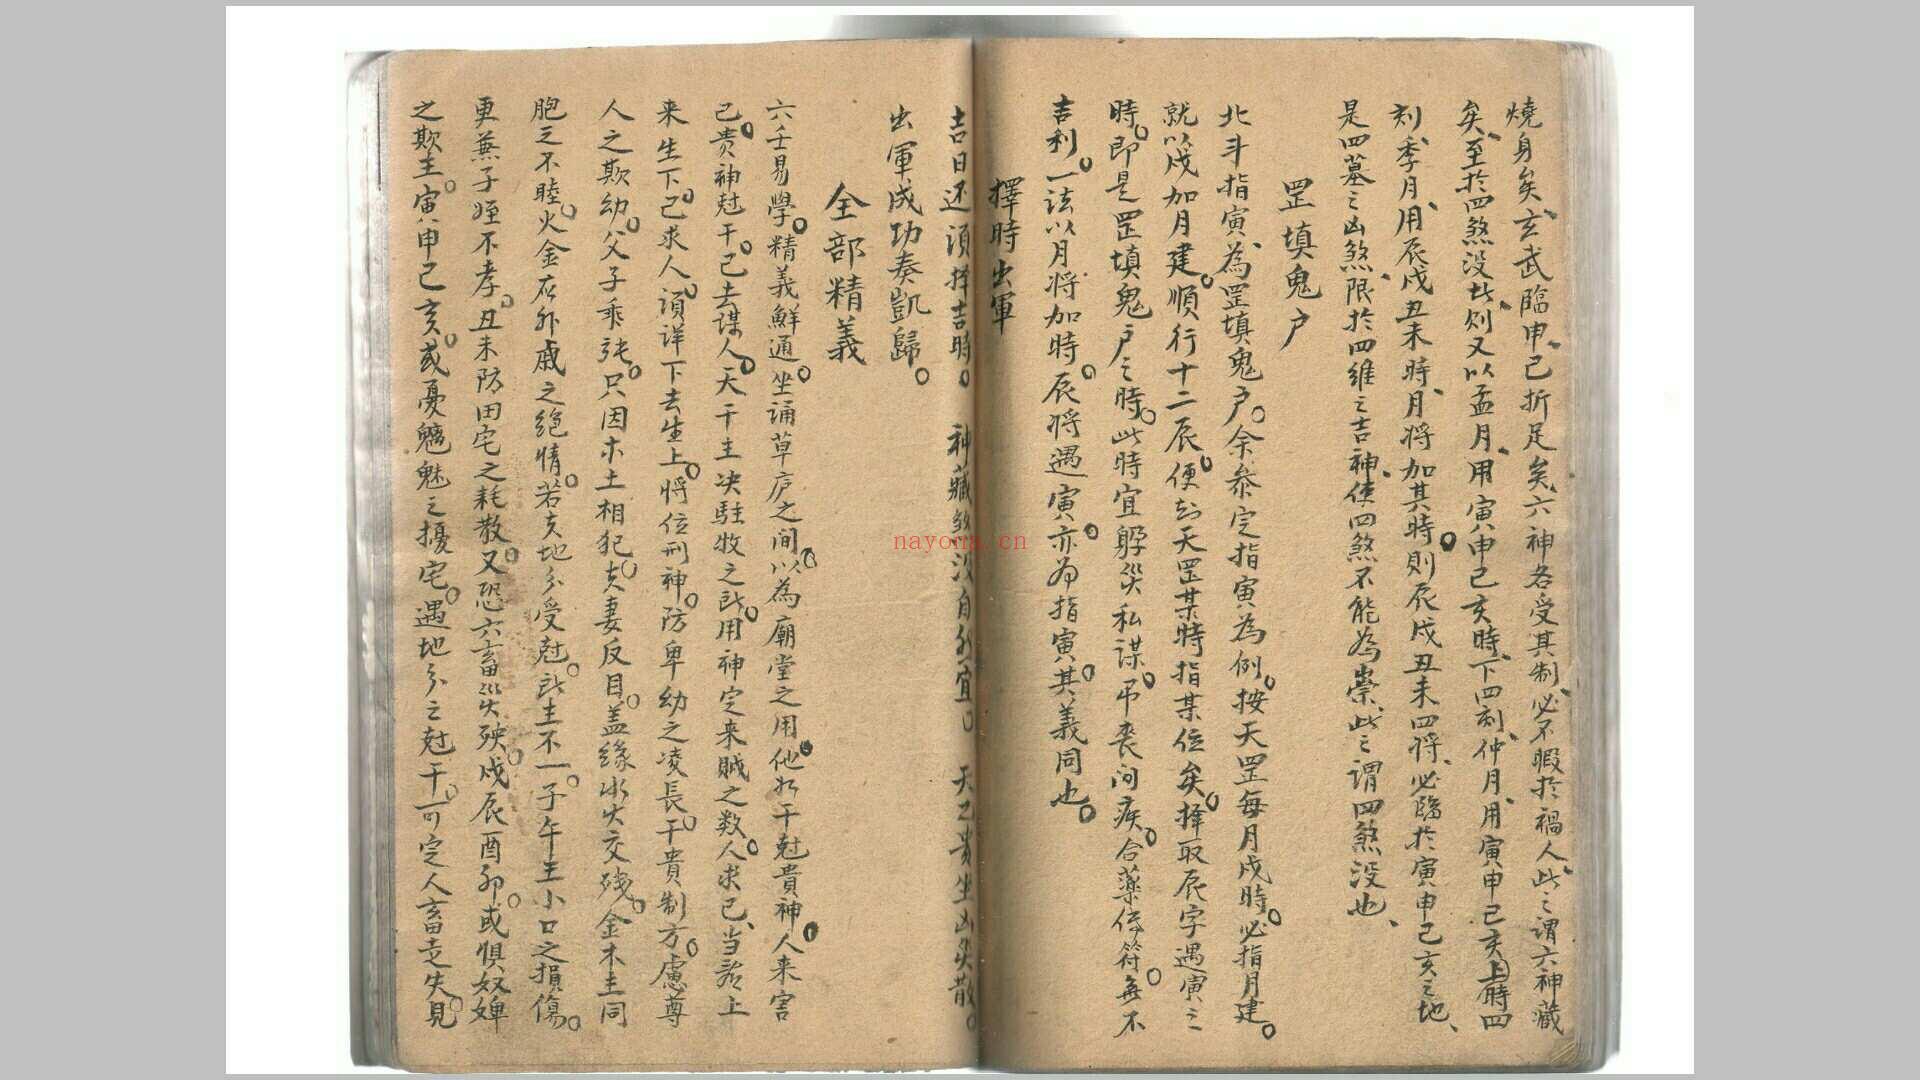 燒身矣、玄武臨申、巳折足矣、六神各受其制、必不暇於禍人、此之謂六神藏
矣、至於四煞没此、則又以孟月、用寅申巳亥時、下四刻、仲月、用寅申巳亥上時四
刻、季月、用辰戌丑未時、月将加其時。則辰戌丑未四将、必臨於寅申巳亥之地、
是四墓之凶煞、限於四維之吉神、使四煞不能為祟、此之謂四煞没也、
罡填鬼户
北斗指寅、為罡填鬼户。余叅定指寅為例。按天罡每月戌時。必指月建。
就以戌加月建。順行十二辰。便知天罡某時指某位矣。擇取辰字遇寅之
時。即是罡填鬼户之時。此時宜躲災私謀。吊丧问疾。合藥俻符。無不
吉利。一法以月将加時。辰将遇寅。亦为指寅。其義同也。
擇時出軍
吉日还須择吉時。 神藏煞没自然宜。 天乙貴坐凶災散。
出軍成功奏凱歸。
全部精義
六壬易學。精義鮮通。坐诵草庐之间。以為廟堂之用。他如干尅貴神。人来害
己。贵神尅干。己去谋人。天干主决駐牧之所。用神定来贼之数。人求己、当為上
来生下。己求人。須详下去生上。将位刑神。防卑幼之凌長。干貴制方。慮尊
人之欺幼。父子乖張。只因木土相犯。夫妻反目。盖緣水火交残。金木主同
胞之不睦。火金应外戚之絶情。若夫地分受尅。所主不一。子午主小口之損傷。
更兼子姪不孝。丑未防田宅之耗散。又恐六畜災殃。戌辰酉卯。或惧奴婢
之欺主。寅申巳亥。或憂魑魅之擾宅。遇地分之尅干。可定人畜走失。見
nayona.cn